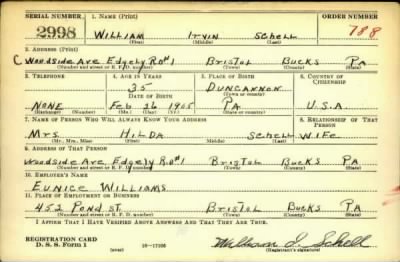 SERIAL NUMBER 1. NAME (Print) ORDER NUMBER
2998 WILLIAM IRVIN SCHELL 788
(First) (Middle) (Last)
2. ADDRESS (Print)
C Woodside Ave Edgely RD#1 BRISTOL BUCKS PA
(Number and street or R. F. D. number) (Town) (County) (State)
3. TELEPHONE 4. AGE IN YEARS 5. PLACE OF BIRTH 6. COUNTRY OF CITIZENSHIP
35 DUNCANNON
DATE OF BIRTH (Town or county)
NONE Feb 26 1905 PA U.S.A
(Exchange) (Number) (Mo.) (Day) (Yr.) (State or country)
7. NAME OF PERSON WHO WILL ALWAYS KNOW YOUR ADDRESS 8. RELATIONSHIP OF THAT PERSON
MRS. HILDA SCHELL WIFE
(Mr., Mrs., Miss) (First) (Middle) (Last)
9. ADDRESS OF THAT PERSON
Woodside Ave Edgely RD#1 BRISTOL BUCKS PA
(Number and street or R. F. D. number) (Town) (County) (State)
10. EMPLOYER'S NAME
EUNICE WILLIAMS
11. PLACE OF EMPLOYMENT OR BUSINESS
452 POND ST BRISTOL BUCKS PA
(Number and street or R. F. D. number) (Town) (County) (State)
I AFFIRM THAT I HAVE VERIFIED ABOVE ANSWERS AND THAT THEY ARE TRUE.
REGISTRATION CARD
D. S. S. Form 1 (over) 16—17105 William I. Schell
(Registrant's signature)